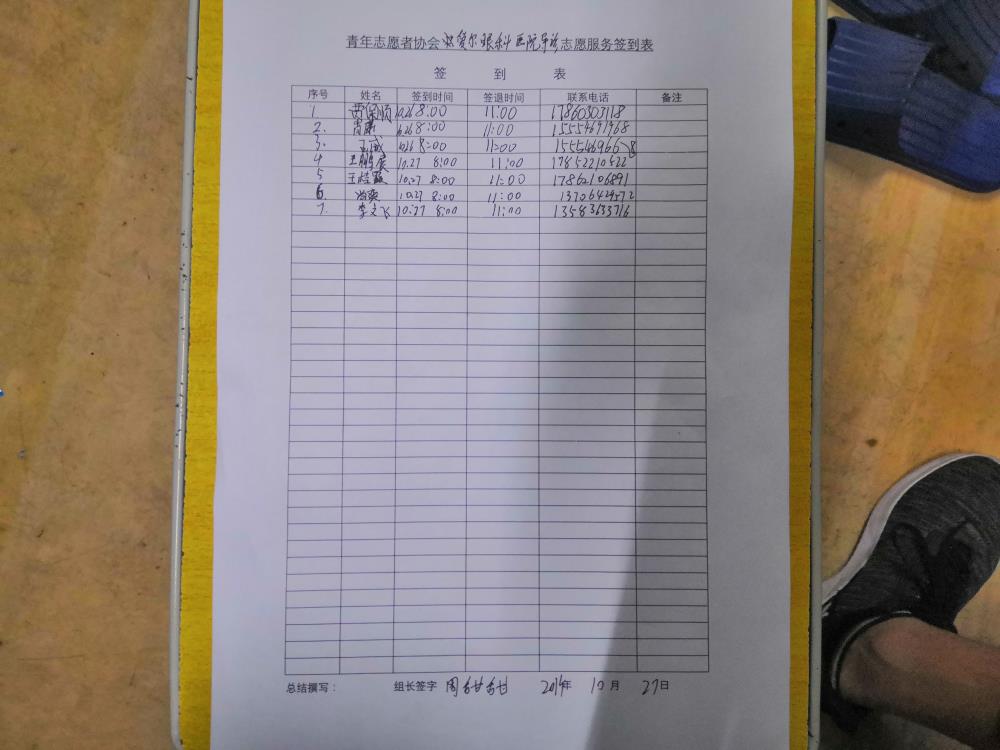 青年志愿者协会 爱尔眼科医院导诊 志愿服务签到表
签 到 表
序号 姓名 签到时间 签退时间 联系电话 备注
1. 8:00 11:00 17860303118
2. 肖肃 8:00 11:00 15554691968
3. 8:00 11:00
4 王鹏宸 10.27 8:00 11:00 17852210522
5 王桂霞 10.27 8:00 11:00 17862106891
6. 10.27 8:00 11:00
7. 李文飞 10.27 8:00 11:00 13583633716
总结撰写： 组长签字 周甜甜 2019年 10月 27日